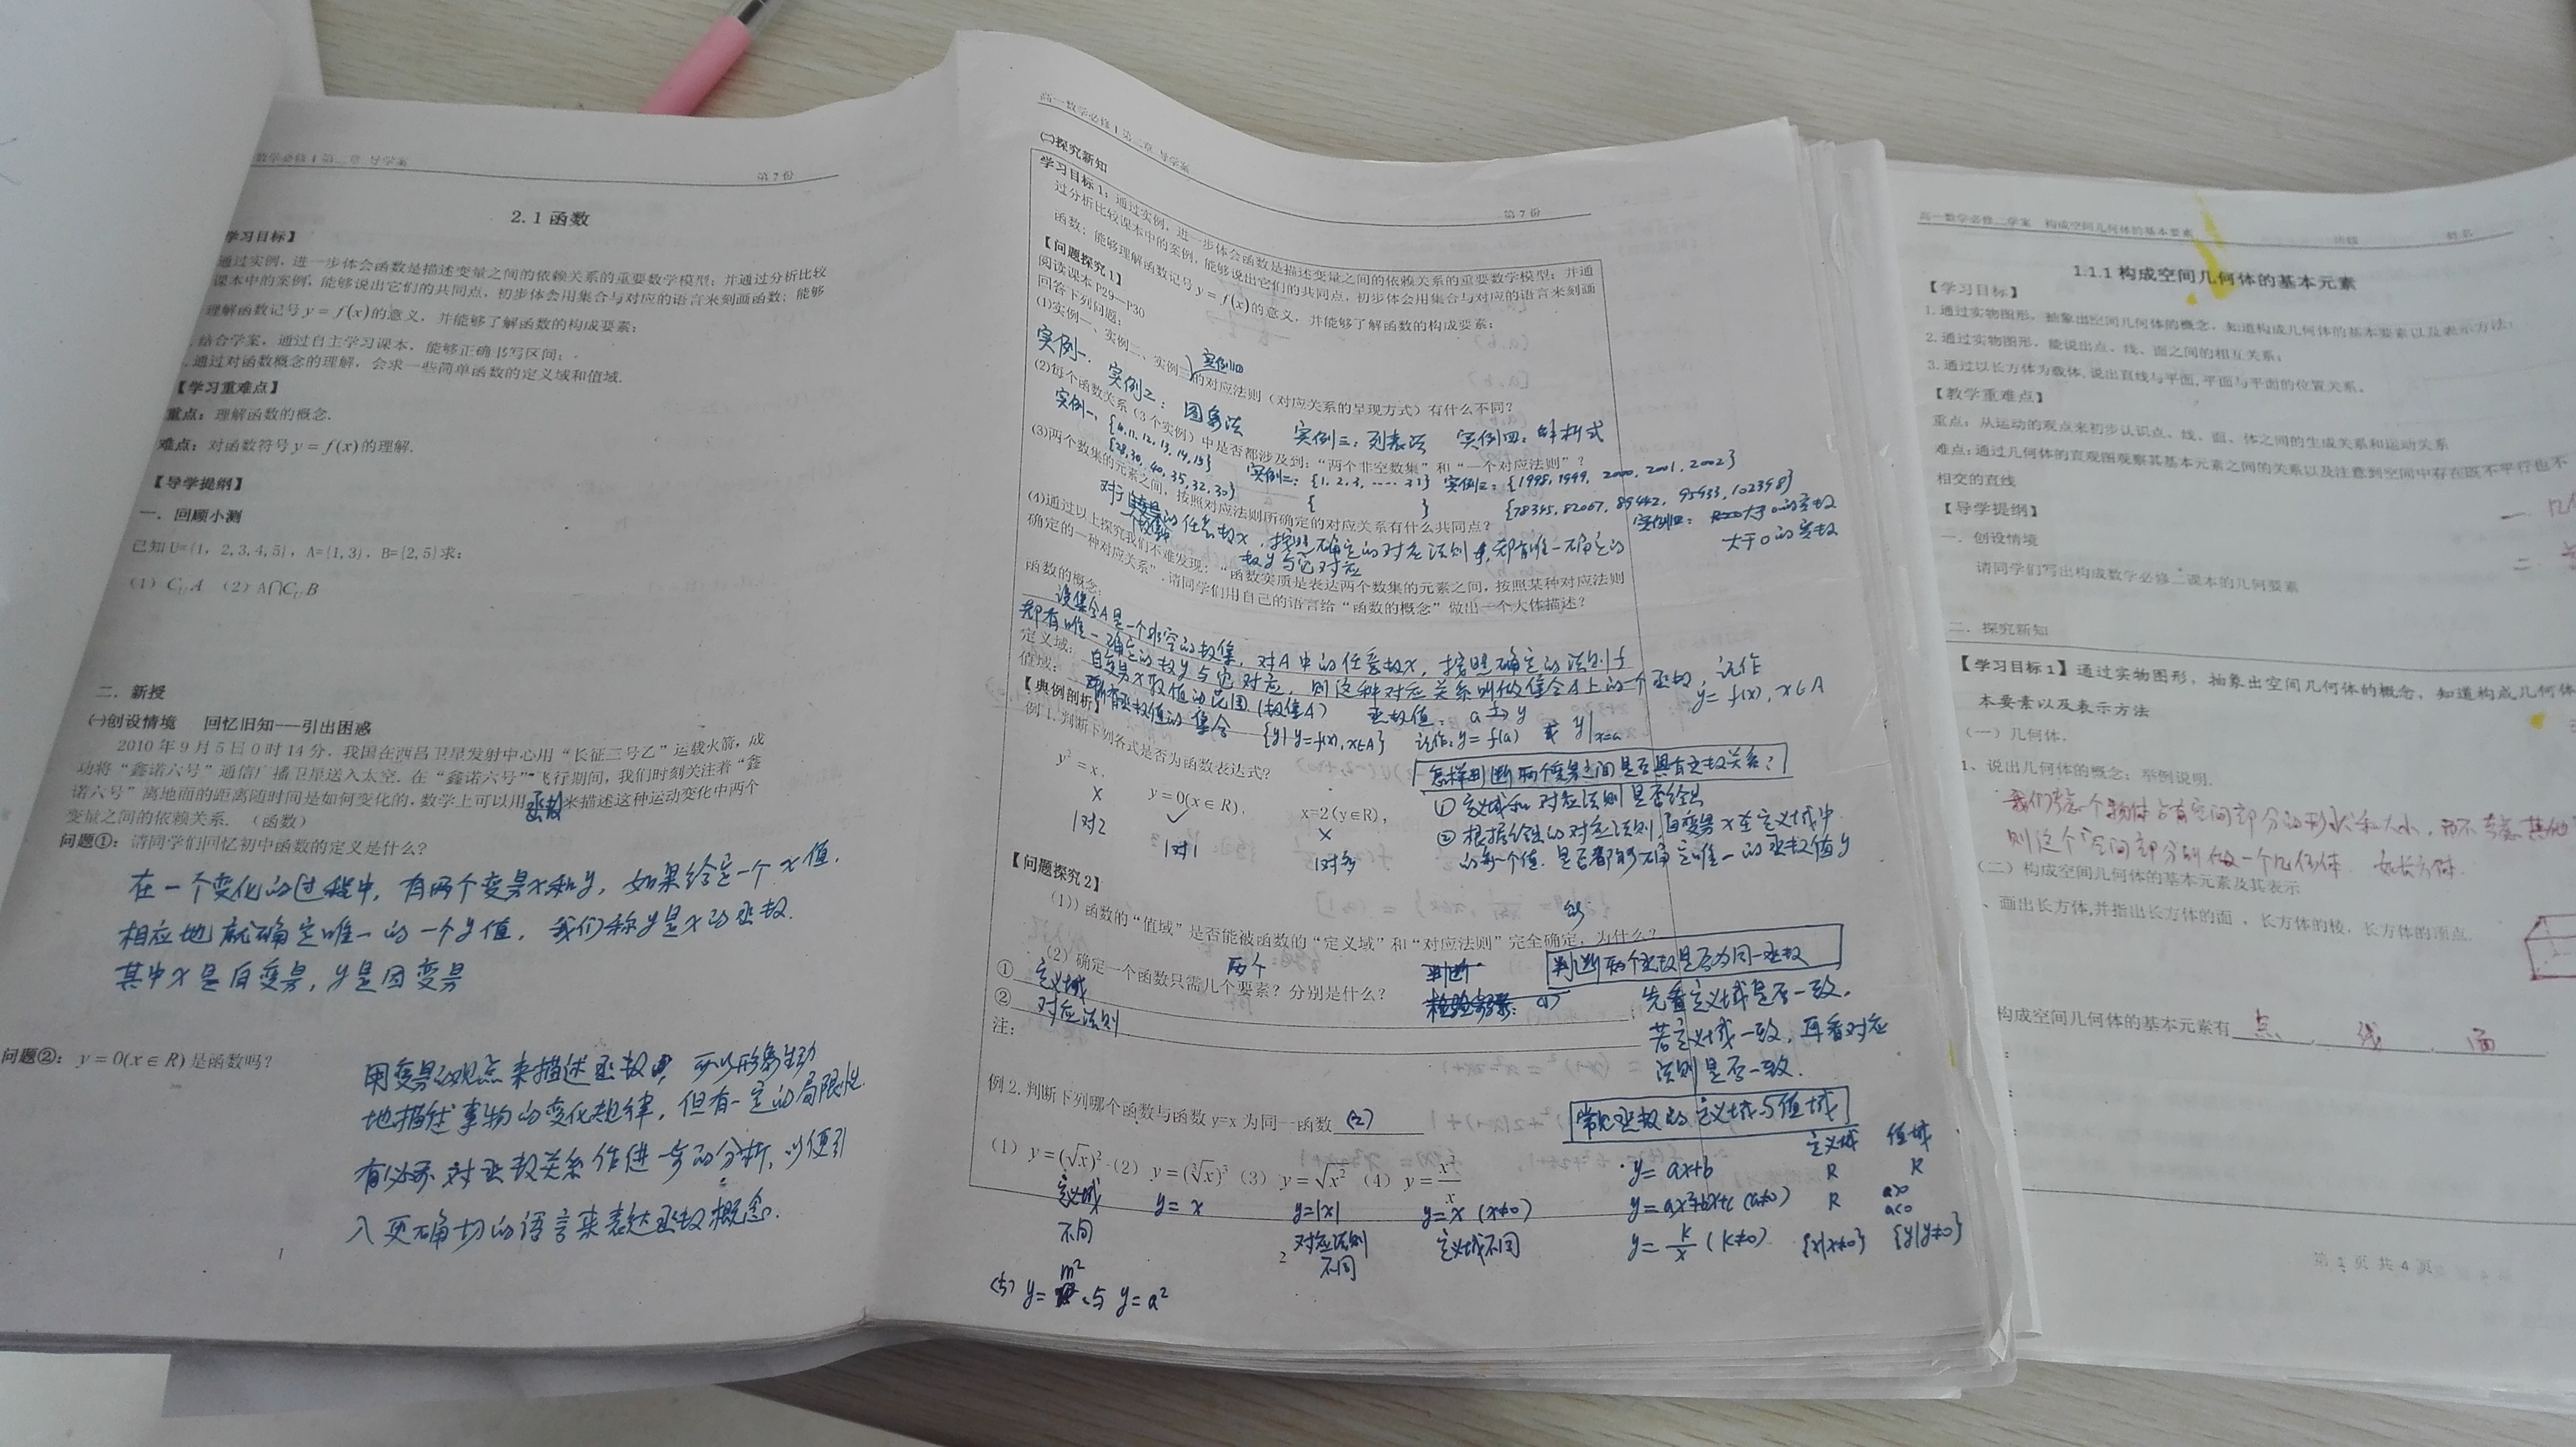 数学必修1第二章 导学案
第7份
2.1函数
学习目标】
通过实例，进一步体会函数是描述变量之间的依赖关系的重要数学模型；并通过分析比较
课本中的案例，能够说出它们的共同点，初步体会用集合与对应的语言来刻画函数；能够
理解函数记号y=f(x)的意义，并能够了解函数的构成要素；
结合学案，通过自主学习课本，能够正确书写区间；
通过对函数概念的理解，会求一些简单函数的定义域和值域.
【学习重难点】
重点：理解函数的概念.
难点：对函数符号y=f(x)的理解.
【导学提纲】
一．回顾小测
已知U={1，2,3,4,5}，A={1,3}，B={2,5}求：
(1) C_U A (2) A∩C_U B
二．新授
㈠创设情境 回忆旧知---引出困惑
2010年9月5日0时14分，我国在西昌卫星发射中心用“长征三号乙”运载火箭，成
功将“鑫诺六号”通信广播卫星送入太空．在“鑫诺六号”飞行期间，我们时刻关注着“鑫
诺六号”离地面的距离随时间是如何变化的，数学上可以用函数来描述这种运动变化中两个
变量之间的依赖关系．（函数）
问题①：请同学们回忆初中函数的定义是什么？
在一个变化的过程中，有两个变量x和y，如果给定一个x值，
相应地就确定唯一的一个y值，我们称y是x的函数.
其中x是自变量，y是因变量
问题②：y=0(x∈R)是函数吗？
用变量的观点来描述函数，可以形象生动
地描述事物的变化规律，但有一定的局限性.
有必要对函数关系作进一步的分析，以便引
入更确切的语言来表达函数概念.
1
高一数学必修1第二章 导学案
第7份
㈡探究新知
学习目标1：通过实例，进一步体会函数是描述变量之间的依赖关系的重要数学模型；并通
过分析比较课本中的案例，能够说出它们的共同点，初步体会用集合与对应的语言来刻画
函数；能够理解函数记号y=f(x)的意义，并能够了解函数的构成要素；
【问题探究1】
阅读课本P29—P30
回答下列问题：
(1)实例一、实例二、实例三 实例四 的对应法则（对应关系的呈现方式）有什么不同？
实例一、实例二：图象法 实例三：列表法 实例四：解析式
(2)每个函数关系（3个实例）中是否都涉及到：“两个非空数集”和“一个对应法则”？
实例二：{1,2,3,……31} 实例三：{1998,1999,2000,2001,2002}
{78345,82067,89442,95933,102398}
(3)两个数集的元素之间，按照对应法则所确定的对应关系有什么共同点？
实例四：大于0的实数
大于0的实数
数y与它对应
(4)通过以上探究我们不难发现：“函数实质是表达两个数集的元素之间，按照某种对应法则
确定的一种对应关系”.请同学们用自己的语言给“函数的概念”做出一个大体描述？
函数的概念：
设集合A是一个非空的数集，对A中的任意数x，按照确定的法则f
都有唯一确定的数y与它对应，则这种对应关系叫做集合A上的一个函数，记作
y=f(x), x∈A
定义域：自变量x取值的范围（数集A） 函数值：a→y
记作：y=f(a) 或 y|x=a
值域：所有函数值的集合 {y|y=f(x),x∈A}
【典例剖析】
例1.判断下列各式是否为函数表达式？
y²=x， y=0(x∈R)， x=2(y∈R)，
× ✓ ×
1对2 1对1 1对多
怎样判断两个变量之间是否具有函数关系？
①定义域和对应法则是否给出
②根据给出的对应法则，自变量x在定义域中
的每个值，是否都能确定唯一的函数值y
【问题探究2】
(1)）函数的“值域”是否能被函数的“定义域”和“对应法则”完全确定，为什么？
能
(2)确定一个函数只需几个要素？分别是什么？
两个
①定义域
②对应法则
注：
判断两个函数是否为同一函数
先看定义域是否一致，
若定义域一致，再看对应
法则是否一致.
例2.判断下列哪个函数与函数y=x为同一函数 (2)
(1) y=(√x)² (2) y=(∛x)³ (3) y=√x² (4) y=x²/x
定义域 y=x y=|x| y=x (x≠0)
不同 对应法则 定义域不同
不同
2
(5) y=m²与y=a²
常见函数的定义域与值域
定义域 值域
y=ax+b R R
y=ax²+bx+c (a≠0) R a>0
a<0
y=k/x (k≠0) {x|x≠0} {y|y≠0}
高一数学必修二学案 构成空间几何体的基本要素
班级 姓名
1.1.1构成空间几何体的基本元素
【学习目标】
1.通过实物图形，抽象出空间几何体的概念，知道构成几何体的基本要素以及表示方法；
2.通过实物图形，能说出点、线、面之间的相互关系；
3.通过以长方体为载体,说出直线与平面,平面与平面的位置关系。
【教学重难点】
重点：从运动的观点来初步认识点、线、面、体之间的生成关系和运动关系
难点：通过几何体的直观图观察其基本元素之间的关系以及注意到空间中存在既不平行也不
相交的直线
【导学提纲】
一．创设情境
请同学们写出构成数学必修二课本的几何要素
二．探究新知
【学习目标1】通过实物图形，抽象出空间几何体的概念，知道构成几何体
本要素以及表示方法
（一）几何体.
1、说出几何体的概念；举例说明.
则这个空间部分叫做一个几何体 如长方体.
（二）构成空间几何体的基本元素及其表示
、画出长方体,并指出长方体的面，长方体的棱，长方体的顶点.
构成空间几何体的基本元素有 点、线、面
第1页共4页